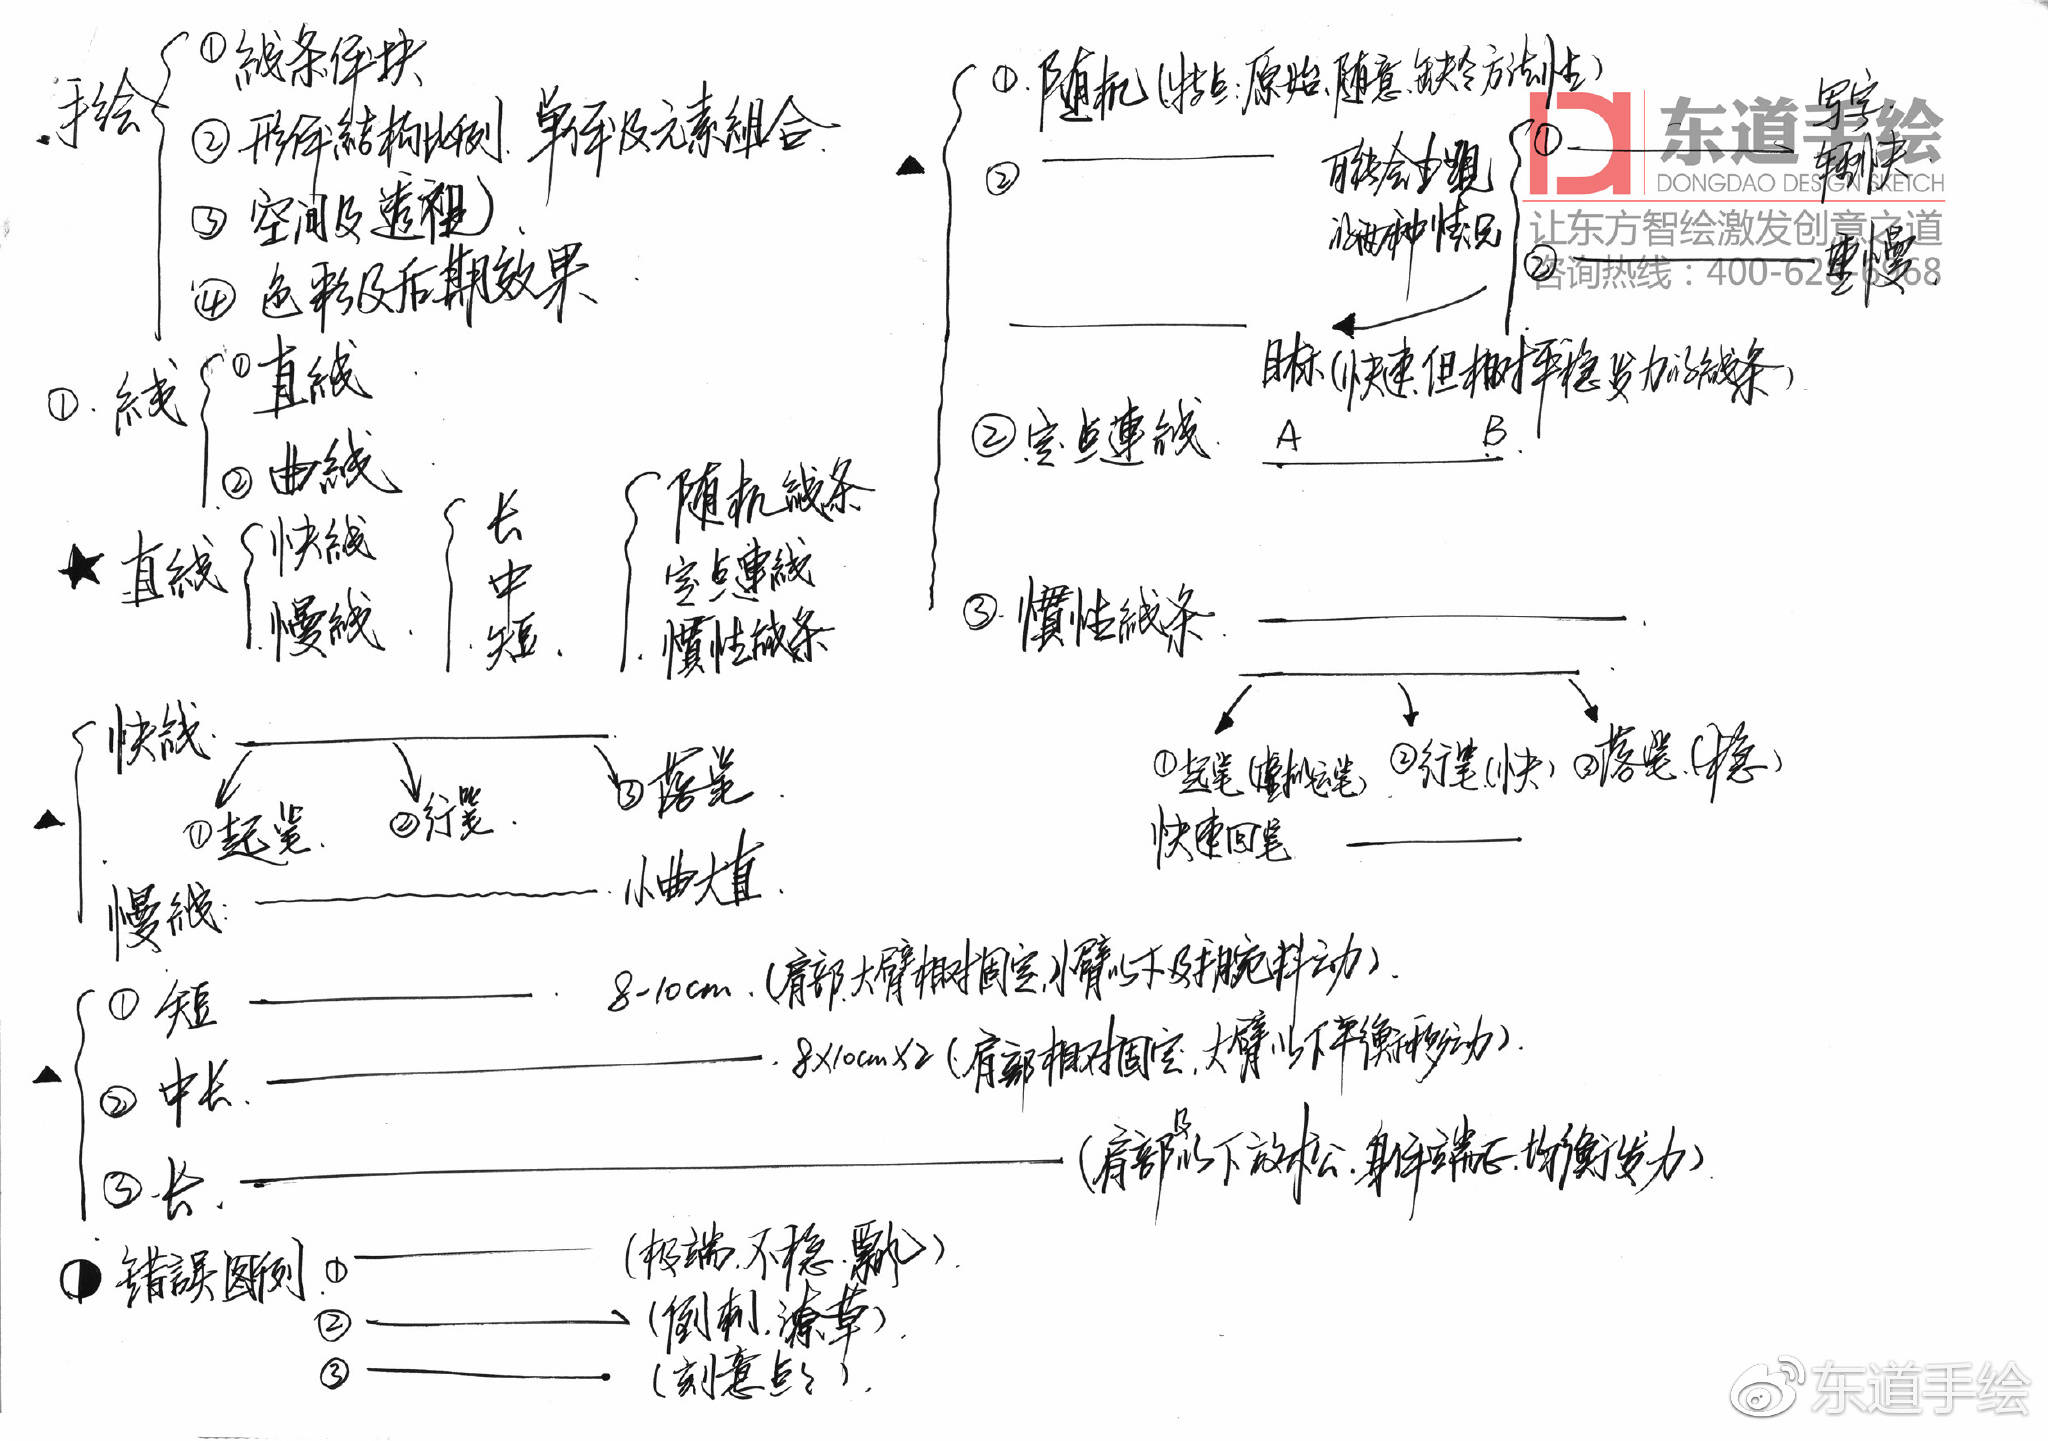 手绘
① 线条体块
② 形体结构比例、单体及元素组合.
③ 空间及透视
④ 色彩及后期效果
①. 线
① 直线
② 曲线
★ 直线
快线
慢线
长
中
短.
随机线条
定点連线
慣性线条
快线.
①起笔.
②行笔.
③落笔.
慢线:
小曲大直.
① 短
8-10cm.(肩部、大臂相对固定,小臂以下及手腕抖动).
② 中长.
8X10cmX2 (肩部相对固定,大臂以下平衡移动).
③ 长.
(肩部及以下放松.身体端正.均衡发力)
错誤图例
①
(极端.不稳.飘)
②
(倒刺.潦草).
③
(刻意点).
①. 随机 (特点:原始、随意、缺乏方法性)
②
可能会出现
的两种情况
① 写字
轻快
② 重慢
目标(快速、但相对平稳发力的线条)
②定点連线.
A
B
③ 慣性线条.
①起笔(虚拟运笔)
②行笔(快)
③落笔.(稳)
快速回笔
东道手绘
DONGDAO DESIGN SKETCH
让东方智绘激发创意之道
东道手绘